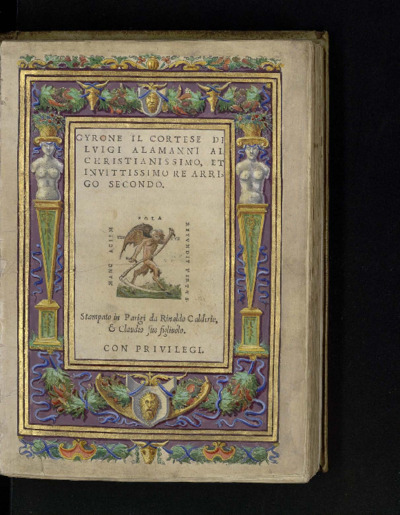 GYRONE IL CORTESE DI
LVIGI ALAMANNI AL
CHRISTIANISSIMO, ET
INVITTISSIMO RE ARRI-
GO SECONDO.
SOLA
HANC ACIEM
RETVNDIT VIRTVS
Stampato in Parigi da Rinaldo Calderio,
& Claudio suo figliuolo.
CON PRIVILEGI.